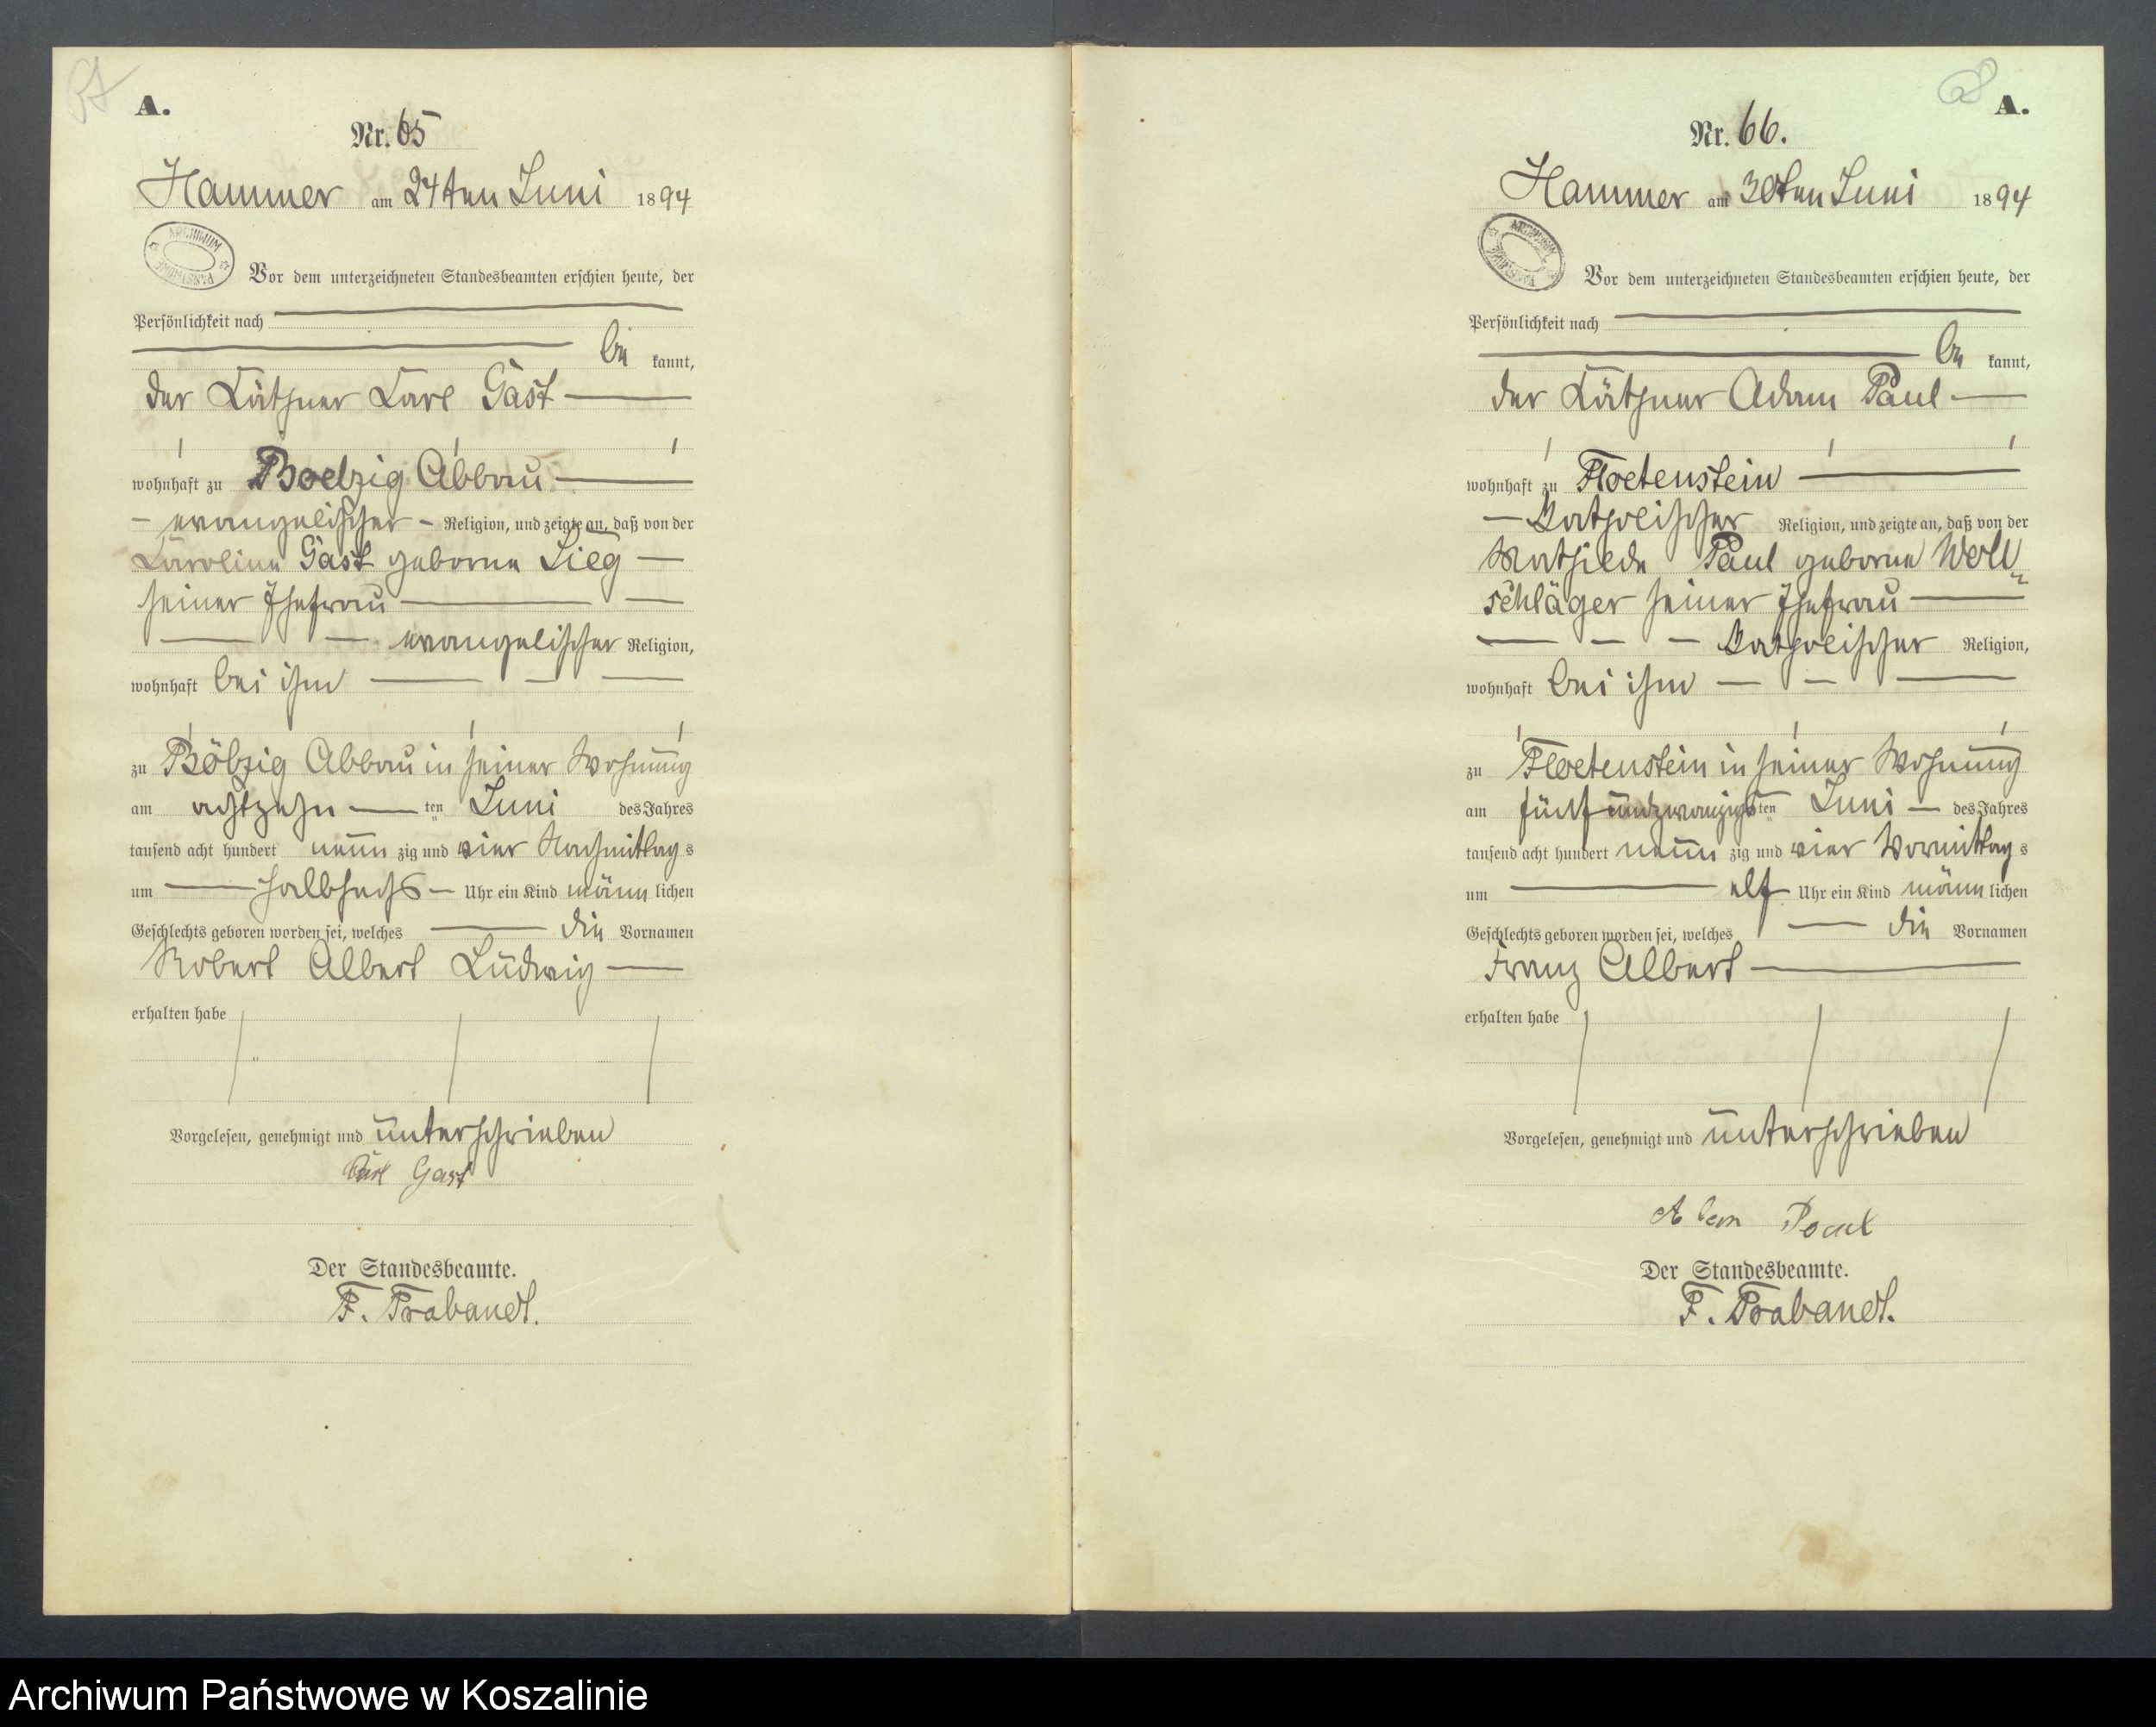 67
A.
Nr. 65
Hammer am 24ten Juni 1894
ARCHIWUM PAŃSTWOWE
Vor dem unterzeichneten Standesbeamten erschien heute, der
Persönlichkeit nach
be kannt,
der Käthner Karl Gast
wohnhaft zu Boelzig Abbau
evangelischer Religion, und zeigte an, daß von der
Karoline Gast geborne Sieg
seiner Ehefrau
evangelischer Religion,
wohnhaft bei ihm
zu Bölzig Abbau in seiner Wohnung
am achtzehn ten Juni des Jahres
tausend acht hundert neun zig und vier Nachmittag s
um halbsechs Uhr ein Kind männ lichen
Geschlechts geboren worden sei, welches die Vornamen
Robert Albert Ludwig
erhalten habe
Vorgelesen, genehmigt und unterschrieben
Karl Gast
Der Standesbeamte.
F. Prabandt.
68
A.
Nr. 66.
Hammer am 30ten Juni 1894
ARCHIWUM PAŃSTWOWE
Vor dem unterzeichneten Standesbeamten erschien heute, der
Persönlichkeit nach
be kannt,
der Käthner Adam Paul
wohnhaft zu Floetenstein
katholischer Religion, und zeigte an, daß von der
Mathilde Paul geborne Woll-
schläger seiner Ehefrau
katholischer Religion,
wohnhaft bei ihm
zu Floetenstein in seiner Wohnung
am fünfundzwanzigs ten Juni des Jahres
tausend acht hundert neun zig und vier Vormittag s
um elf Uhr ein Kind männ lichen
Geschlechts geboren worden sei, welches die Vornamen
Franz Albert
erhalten habe
Vorgelesen, genehmigt und unterschrieben
Adam Paul
Der Standesbeamte.
F. Prabandt.
Archiwum Państwowe w Koszalinie